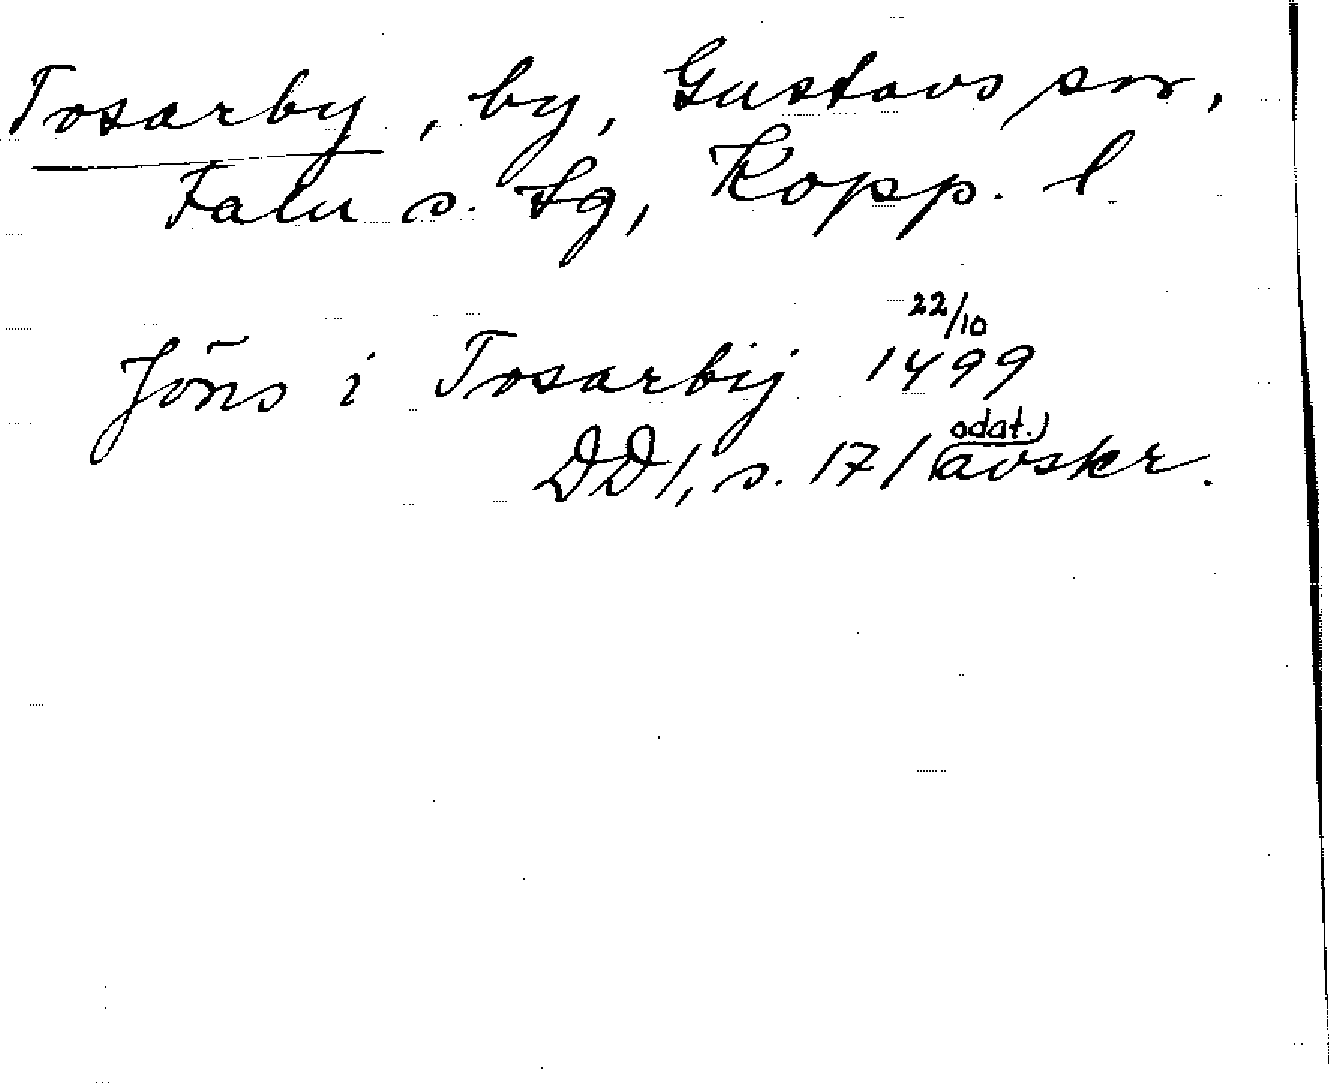 Tosarby, by, Gustavs sn,
Falu s. tg, Kopp. l
Jöns i Tosarbij 22/10 1499
DD1, s. 171 (odat.) avskr.